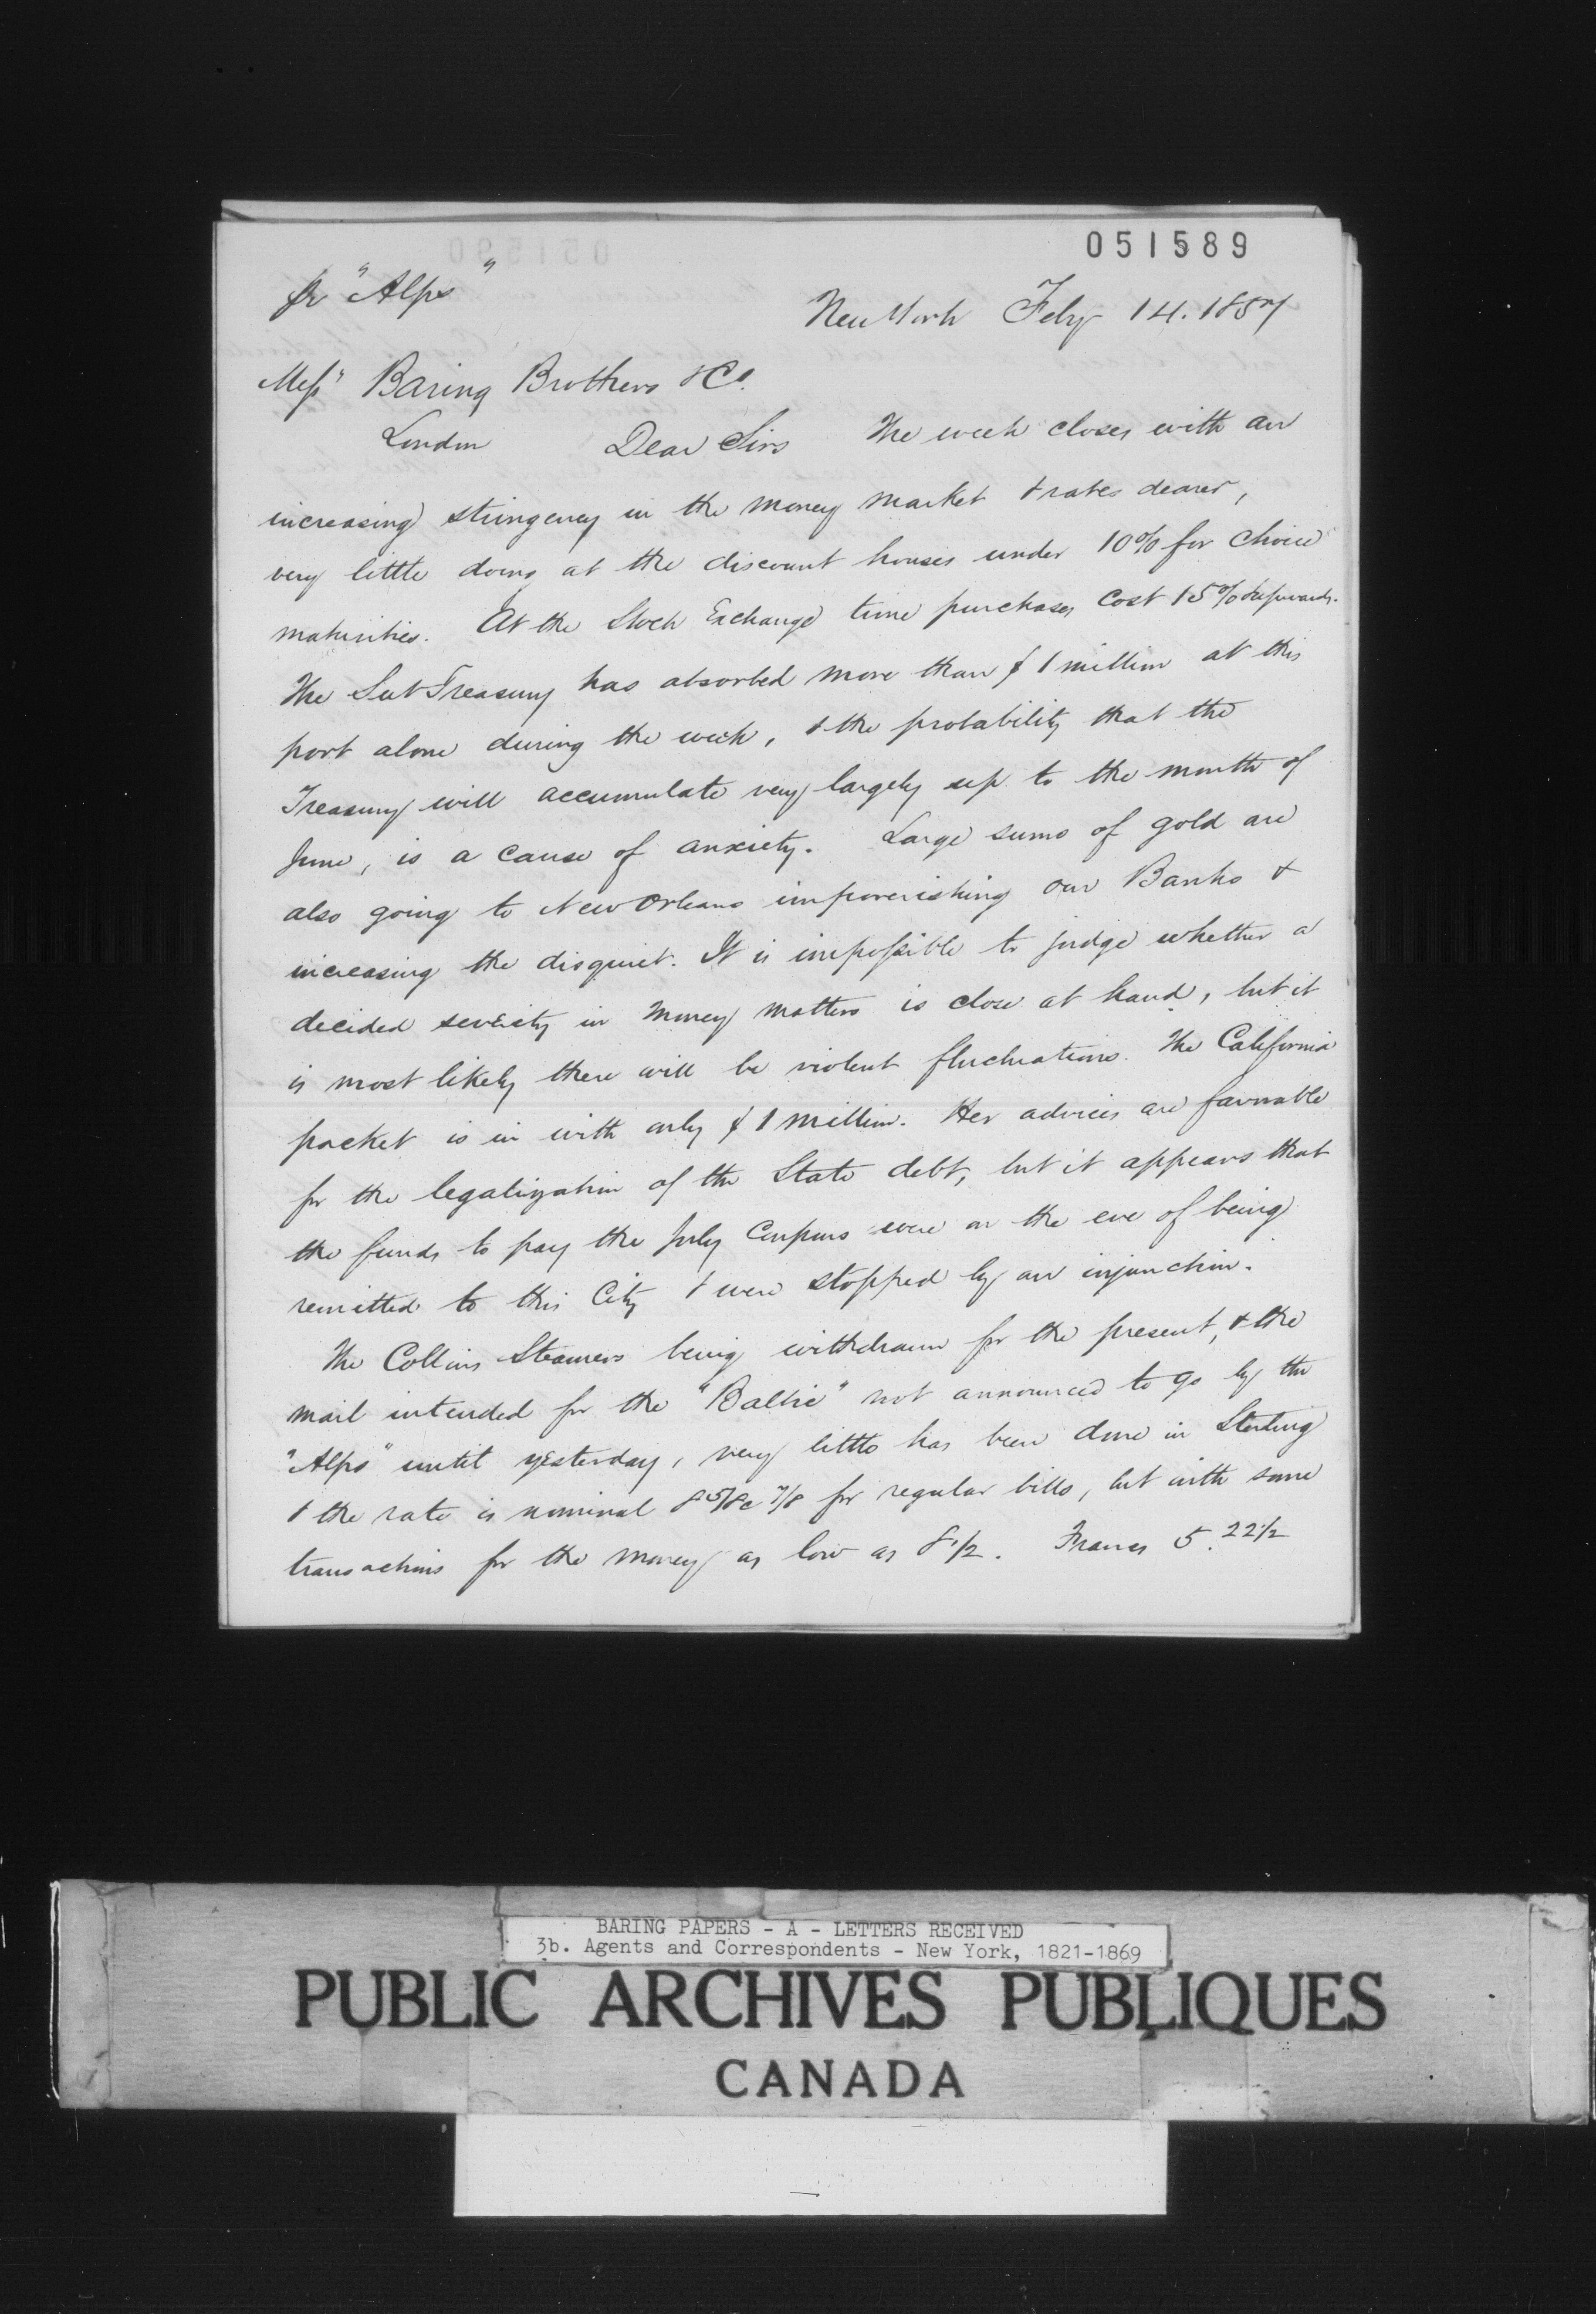 051589
pr "Alps"
New York Feby 14. 1857
Messrs Baring Brothers & Co.
London Dear Sirs The week closes with an
increasing stringency in the money market & rates dearer,
very little doing at the discount houses under 10% for choice
maturities. At the Stock Exchange time purchases cost 15% & upwards.
The Sub Treasury has absorbed more than $1 million at this
port alone during the week, & the probability that the
Treasury will accumulate very largely up to the month of
June, is a cause of anxiety. Large sums of gold are
also going to New Orleans impoverishing our Banks &
increasing the disquiet. It is impossible to judge whether a
decided severity in money matters is close at hand, but it
is most likely there will be violent fluctuations. The California
packet is in with only $1 million. Her advices are favorable
for the legalization of the State debt, but it appears that
the funds to pay the July Coupons were on the eve of being
remitted to this City & were stopped by an injunction.
The Collins Steamers being withdrawn for the present, & the
mail intended for the "Baltic" not announced to go by the
"Alps" until yesterday, very little has been done in Sterling
& the rate is nominal 8 5/8 @ 7/8 for regular bills, but with some
transactions for the money as low as 8 1/2. Francs 5.22 1/2
BARING PAPERS - A - LETTERS RECEIVED
3b. Agents and Correspondents - New York, 1821-1869
PUBLIC ARCHIVES PUBLIQUES
CANADA